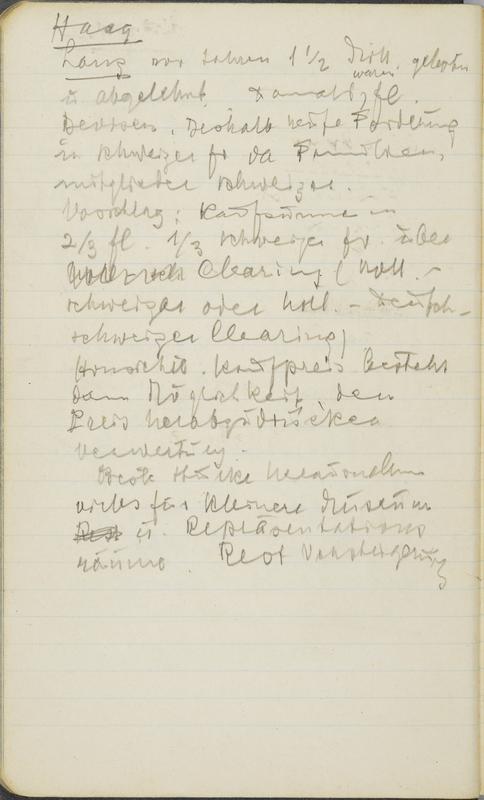 Haag
Lanz vor Jahren 1 1/2 Mill. geboten
waren
u abgelehnt. Damals fl.
Devisen, deshalb heute Forderung
in schweizer fr da Familien,
mitglieder schweizer.
Vorschlag: Kaufsumme in
2/3 fl. 1/3 schweizer fr. über
Clearing (holl. –
schweizer oder holl. – deutsch –
schweizer Clearing)
Hinsichtl. Kaufpreis besteht
dann Möglichkeit den
Preis herabzudrücken
Verwertung.
Beste Stücke herausnehmen
vieles für kleinere Museum
u. Repräsentations
räume Rest Versteigerung